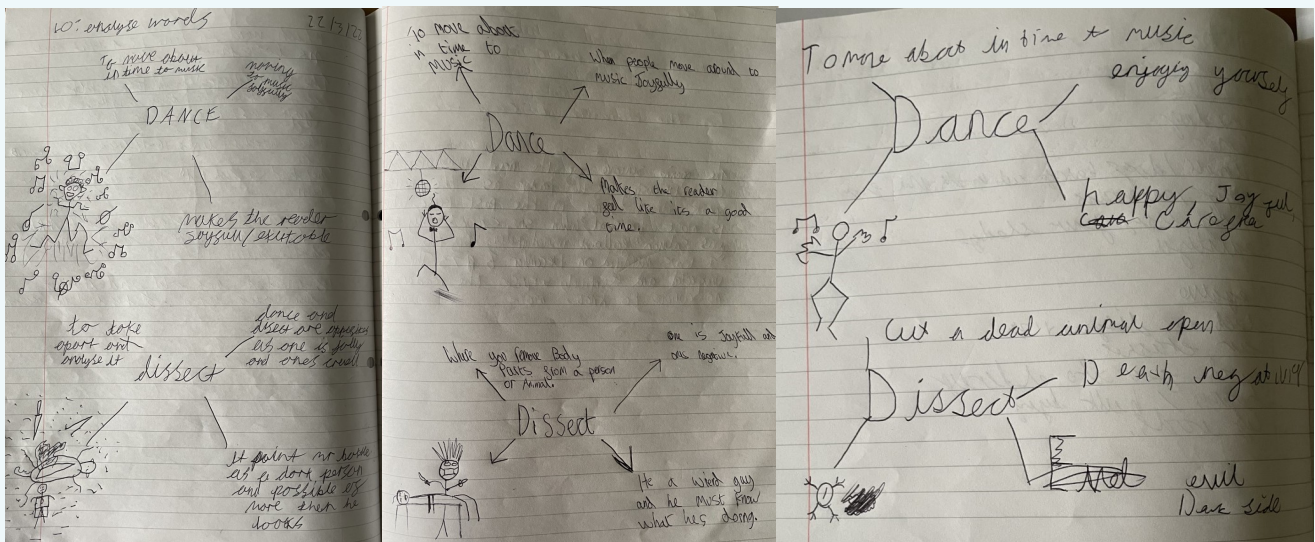 LO: analyse words
22/3/22
To move about
in time to music
moving
to music
joyfully
DANCE
makes the reader
joyfull/exicitable
to take
apart and
analyse it
dance and
disect are opposites
as one is jolly
and ones cruell
dissect
It paint mr
as a dark person
and possible of
more then he
looks
To move about
in time to
music
When people move around to
music Joyfully
Dance
Makes the reader
feel like its a good
time.
Where you remove Body
Parts from a person
or Animal.
one is Joyfull and
one negative.
Dissect
He a wierd guy
and he must know
what hes doing.
To move about in time to music
enjoying yourself
Dance
happy, Joyful,
Carefree
Cut a dead animal open
Death negative
Dissect
evil
Dark side